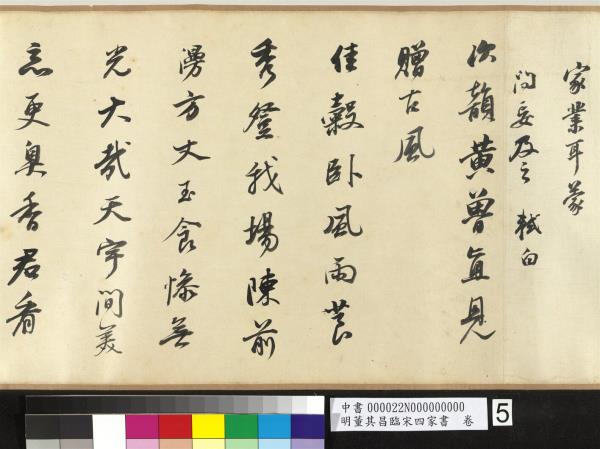 家業耳蒙
問妄及之 軾白
次韻黄魯直見
贈古風
佳穀卧風雨莨
秀登我場陳前
漫方丈玉食慘無
光大哉天宇間美
惡更臭香君看
中書 000022N000000000
明董其昌臨宋四家書 卷
5